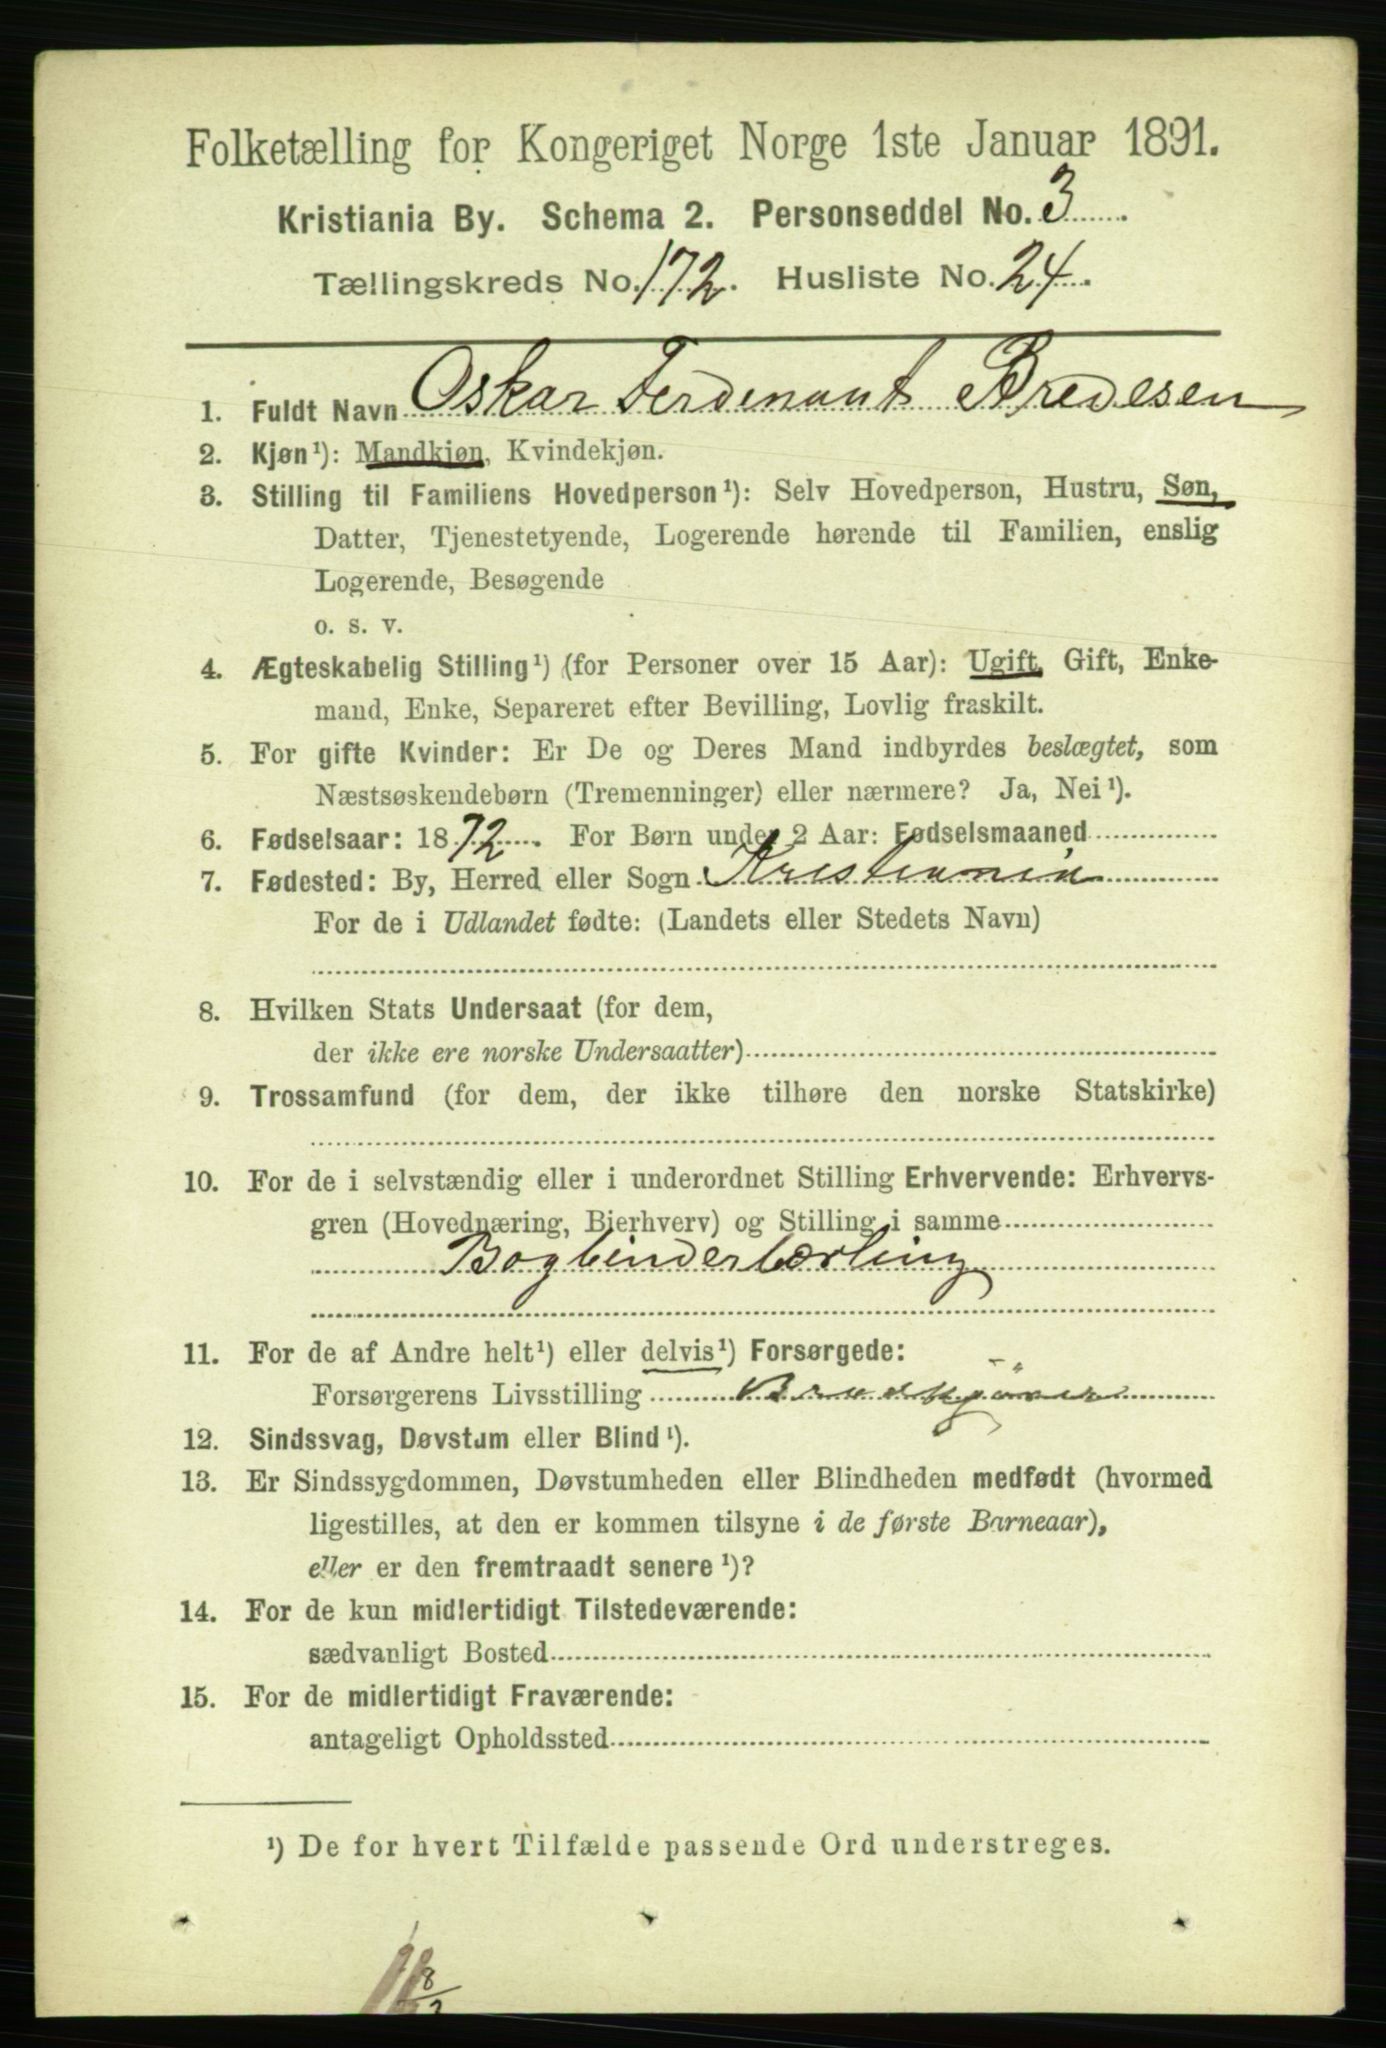 Folketælling for Kongeriget Norge 1ste Januar 1891.
Kristiania By. Schema 2. Personseddel No. 3
Tællingskreds No. 172. Husliste No. 24.
1. Fuldt Navn Oskar Ferdinant Bredesen
2. Kjøn¹): Mandkjøn, Kvindekjøn.
3. Stilling til Familiens Hovedperson¹): Selv Hovedperson, Hustru, Søn,
Datter, Tjenestetyende, Logerende hørende til Familien, enslig
Logerende, Besøgende
o. s. v.
4. Ægteskabelig Stilling¹) (for Personer over 15 Aar): Ugift, Gift, Enke-
mand, Enke, Separeret efter Bevilling, Lovlig fraskilt.
5. For gifte Kvinder: Er De og Deres Mand indbyrdes beslægtet, som
Næstsøskendebørn (Tremenninger) eller nærmere? Ja, Nei¹).
6. Fødselsaar: 1872. For Børn under 2 Aar: Fødselsmaaned
7. Fødested: By, Herred eller Sogn Kristiania
For de i Udlandet fødte: (Landets eller Stedets Navn)
8. Hvilken Stats Undersaat (for dem,
der ikke ere norske Undersaatter)
9. Trossamfund (for dem, der ikke tilhøre den norske Statskirke)
10. For de i selvstændig eller i underordnet Stilling Erhvervende: Erhvervs-
gren (Hovednæring, Bierhverv) og Stilling i samme
Bogbinderlærling
11. For de af Andre helt¹) eller delvis¹) Forsørgede:
Forsørgerens Livsstilling
12. Sindssvag, Døvstum eller Blind¹).
13. Er Sindssygdommen, Døvstumheden eller Blindheden medfødt (hvormed
ligestilles, at den er kommen tilsyne i de første Barneaar),
eller er den fremtraadt senere¹)?
14. For de kun midlertidigt Tilstedeværende:
sædvanligt Bosted
15. For de midlertidigt Fraværende:
antageligt Opholdssted
¹) De for hvert Tilfælde passende Ord understreges.